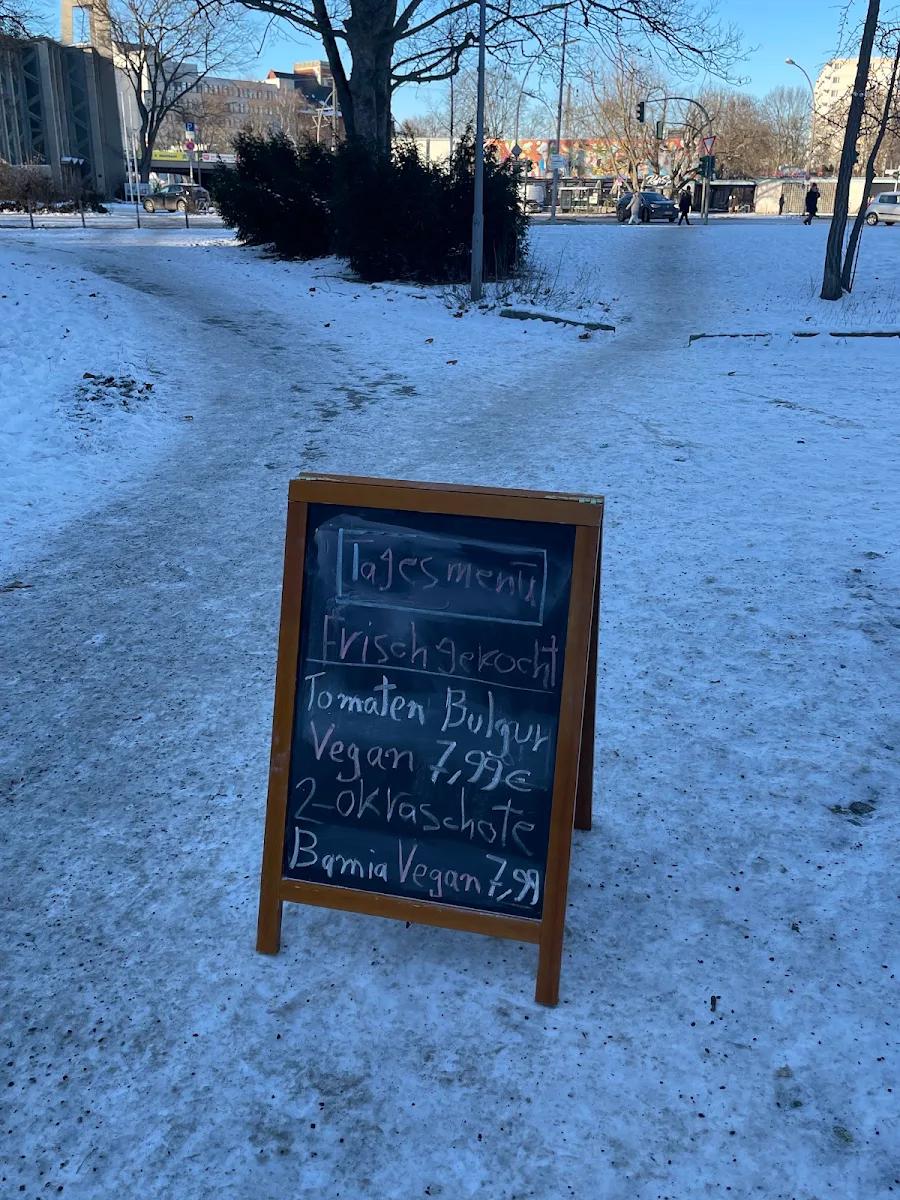 Tagesmenü
Frisch gekocht
Tomaten Bulgur
Vegan 7,99€
2-okraschote
Bamia Vegan 7,99